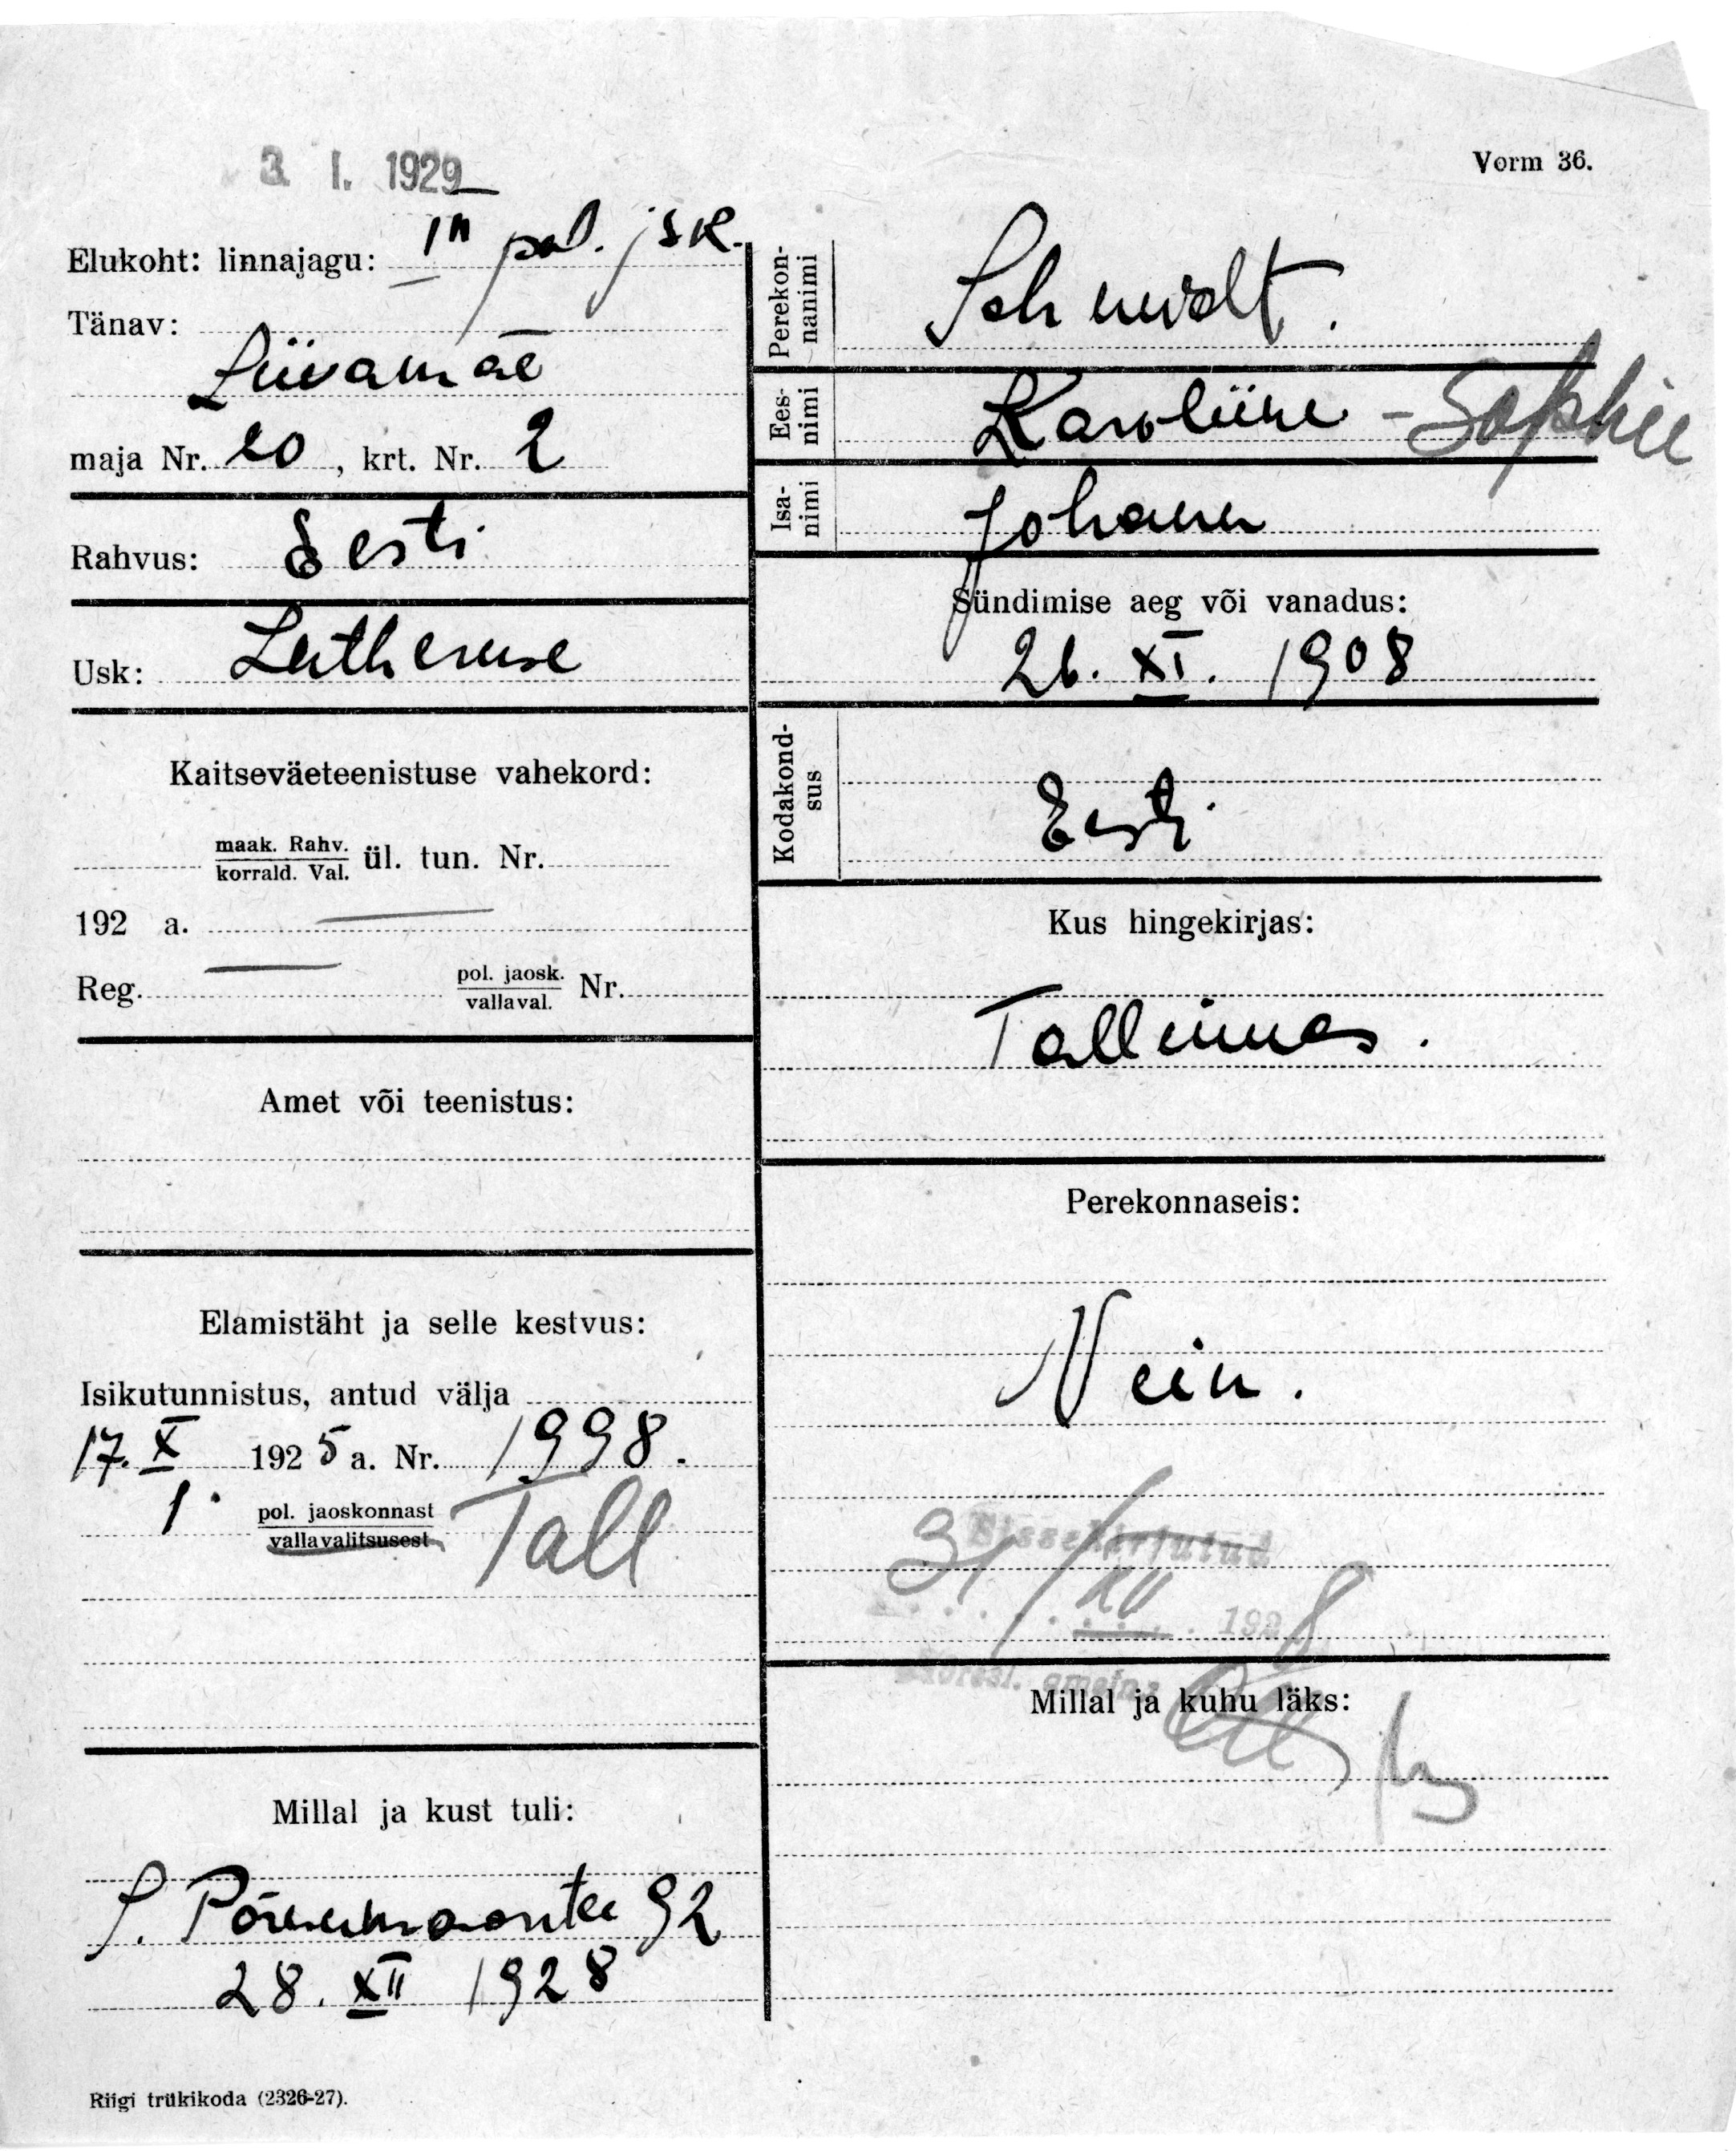 3. I. 1929
Vorm 36.
Elukoht: linnajagu: I pol. jsk.
Tänav:
Liivamäe
maja Nr. 20, krt. Nr. 2
Rahvus: Eesti
Usk: Lutheruse
Kaitseväeteenistuse vahekord:
maak. Rahv.
korrald. Val. ül. tun. Nr.
192 a.
Reg. pol. jaosk.
vallaval. Nr.
Amet või teenistus:
Elamistäht ja selle kestvus:
Isikutunnistus, antud välja
17. X 1925 a. Nr. 1998.
1. pol. jaoskonnast Tall
vallavalitsusest
Millal ja kust tuli:
S. Pärnumaantee 92
28. XII 1928
Riigi trükikoda (2326-27).
Perekon-
nanimi
Schmidt.
Ees-
nimi
Karoliine - Sophie
Isa-
nimi
Johann
Sündimise aeg või vanadus:
26. XI. 1908
Kodakond-
sus
Eesti
Kus hingekirjas:
Tallinnas.
Perekonnaseis:
Nein.
Sissekirjutud
31/XII 1928
Millal ja kuhu läks: